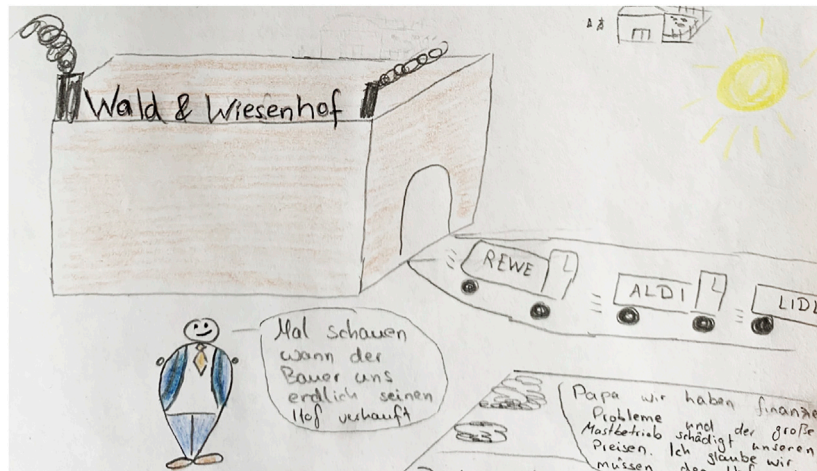 Wald & Wiesenhof
REWE
ALDI
LIDL
Mal schauen
wann der
Bauer uns
endlich seinen
Hof verkauft
Papa wir haben finanzie
Probleme und der große
Mastbetrieb schädigt unseren
Preisen. Ich glaube wir
müssen